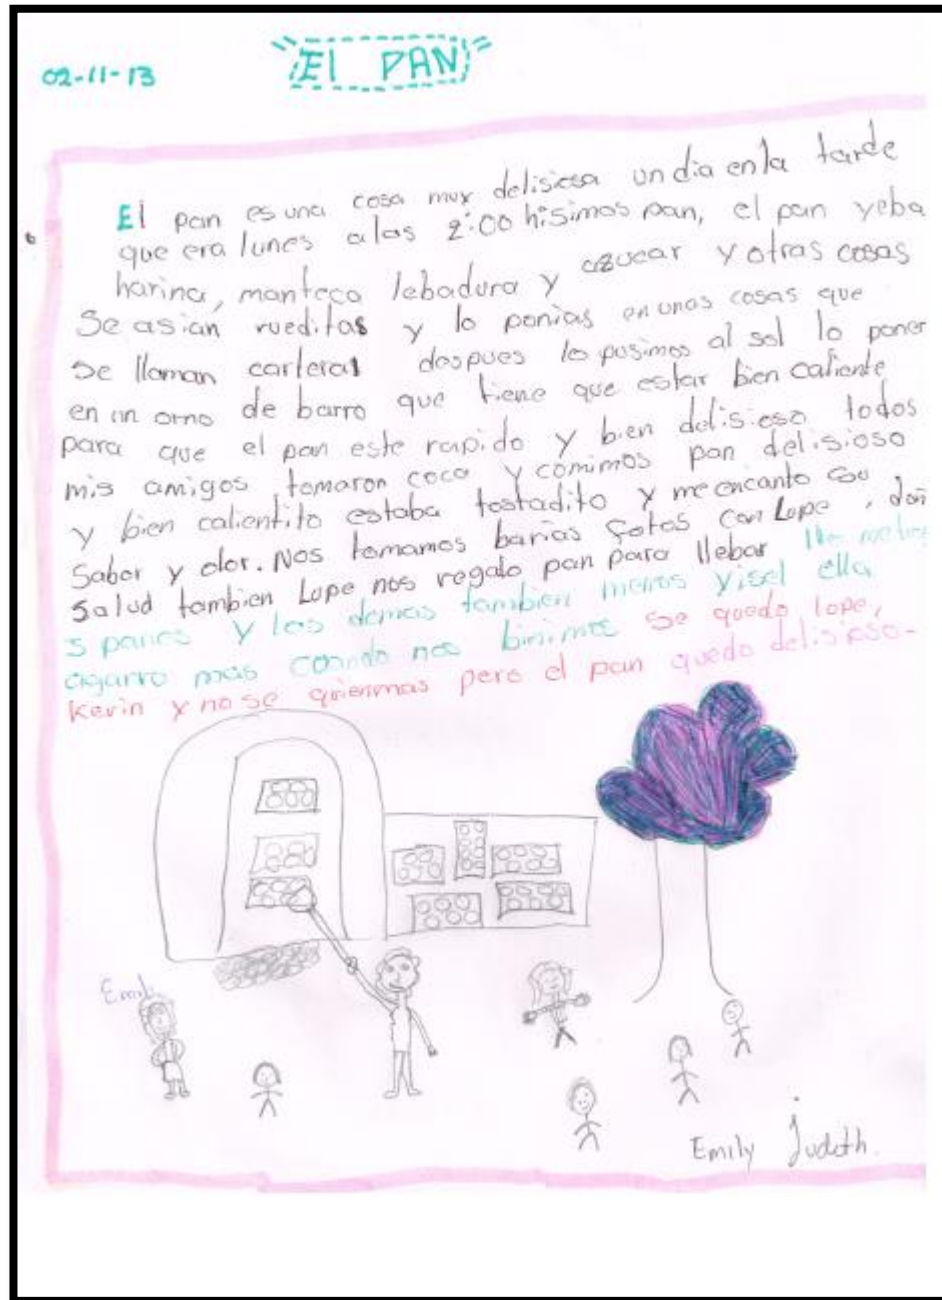 02-11-13
El PAN
El pan es una cosa muy delisiosa un dia en la tarde
que era lunes a las 2:00 hisimos pan, el pan yeba
harina, manteca lebadura y azucar y otras cosas
Se asian rueditas y lo ponias en unas cosas que
se llaman carteras despues lo pusimos al sol lo poner
en un orno de barro que tiene que estar bien caliente
para que el pan este rapido y bien delisioso todos
mis amigos tomaron coca y comimos pan delisioso
y bien calientito estaba tostadito y me encanto su
Sabor y olor. Nos tomamos barias fotos con Lupe, doñ
Salud tambien Lupe nos regalo pan para llebar
5 panes y los demas tambien menos yisel ella
agarro mas cuando nos binimos se quedo lupe,
Kevin y no se quienmas pero el pan quedo delisioso-
Emily
Emily Judith.